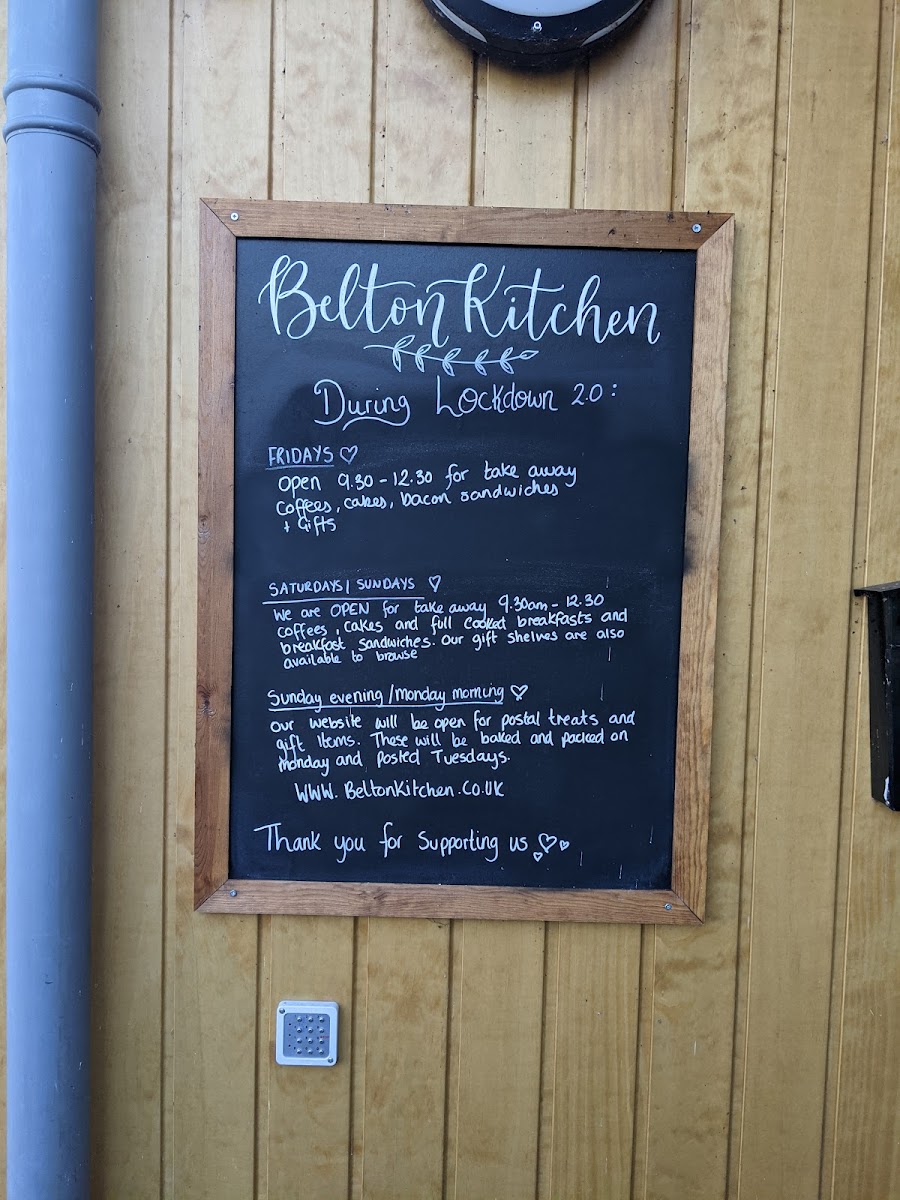 Belton Kitchen
During Lockdown 2.0:
FRIDAYS
Open 9.30 - 12.30 for take away
coffees, cakes, bacon sandwiches
+ Gifts
SATURDAYS / SUNDAYS
We are OPEN for take away 9.30am - 12.30
coffees, cakes and full cooked breakfasts and
breakfast sandwiches. Our gift shelves are also
available to browse
Sunday evening / monday morning
our website will be open for postal treats and
gift items. These will be baked and packed on
monday and posted Tuesdays.
WWW.BeltonKitchen.CO.UK
Thank you for Supporting us